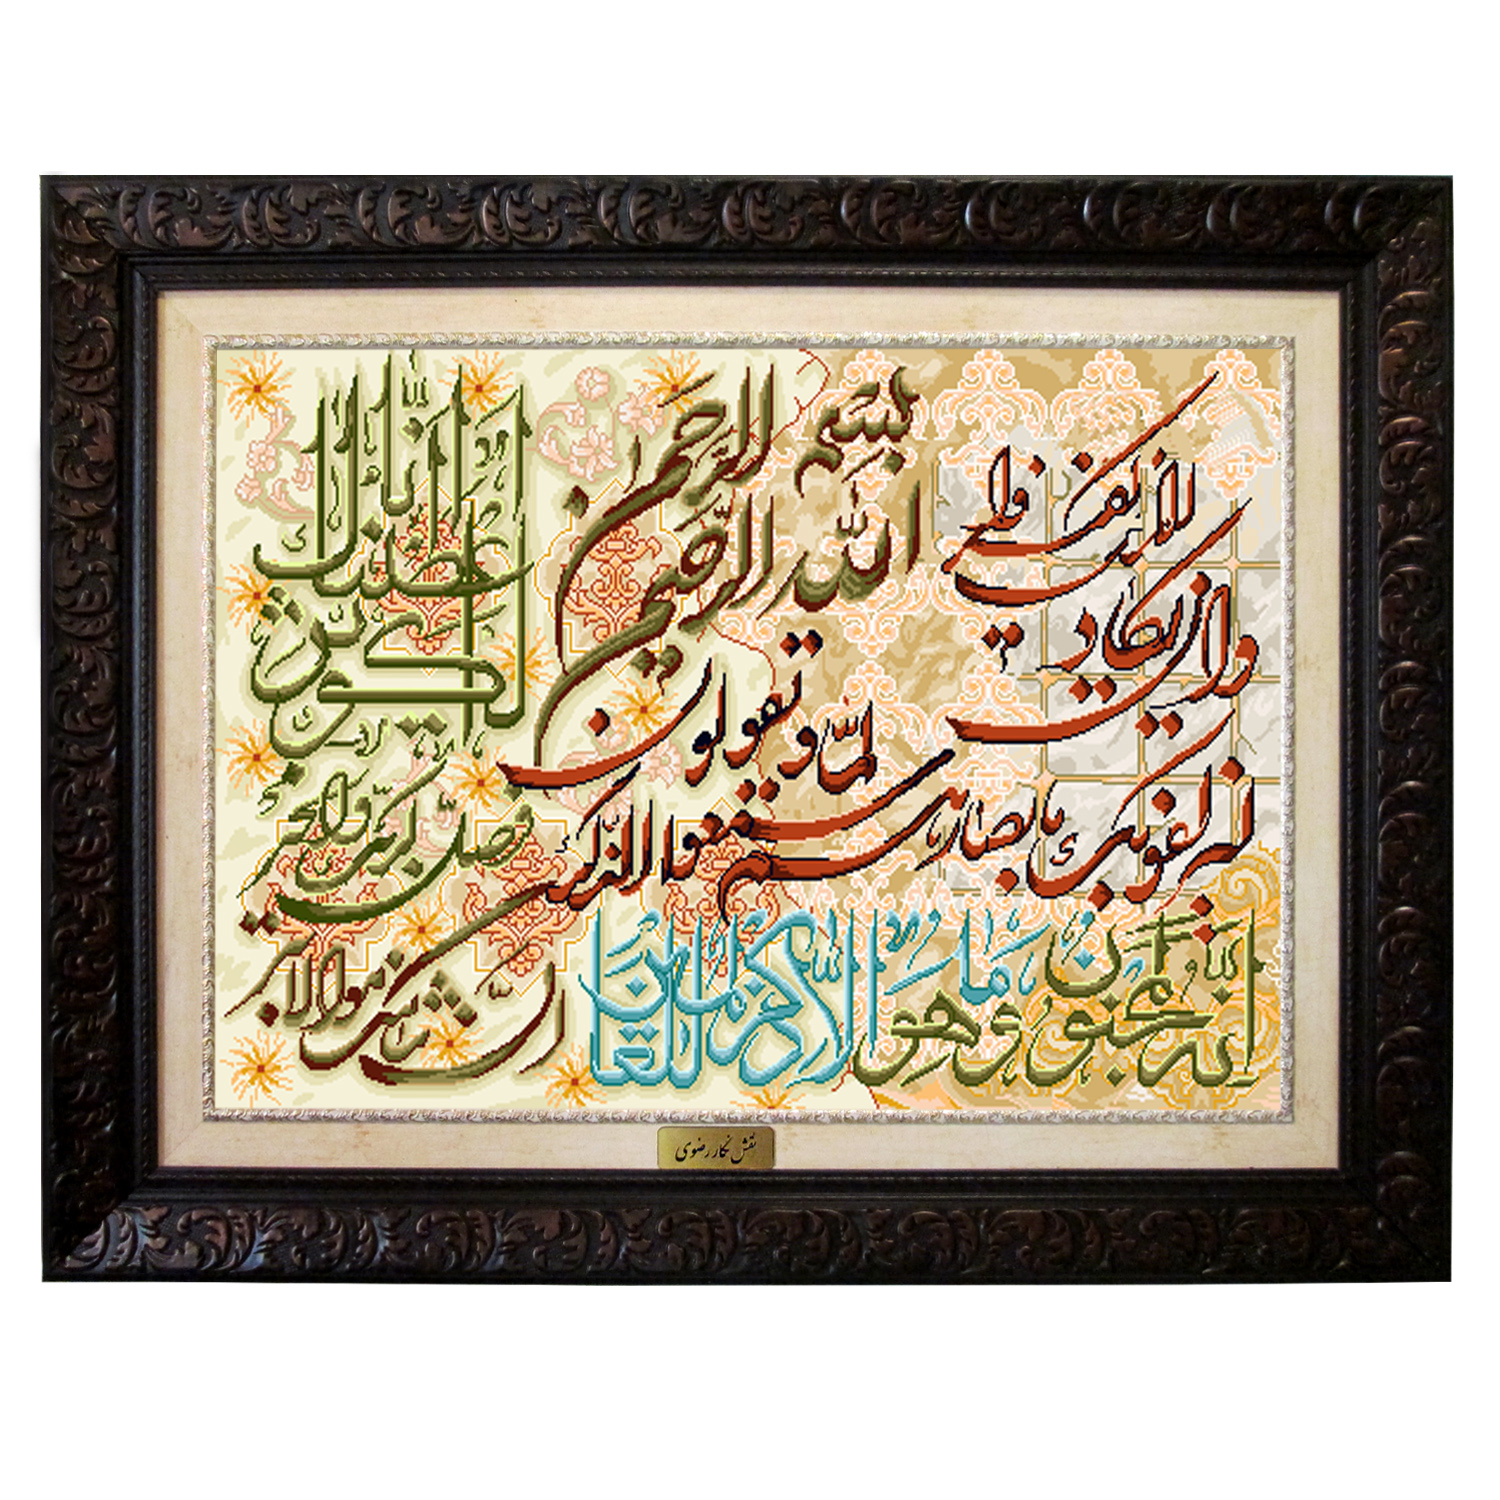 بسم الله الرحمن الرحیم
وان یکاد الذین کفروا
لیزلقونک بابصارهم
لما سمعوا الذکر
ویقولون
انه لمجنون وما هو
الا ذکر للعالمین
انا اعطیناک
الکوثر
فصل لربک وانحر
ان شانئک هو الابتر
نقش نگار رضوی